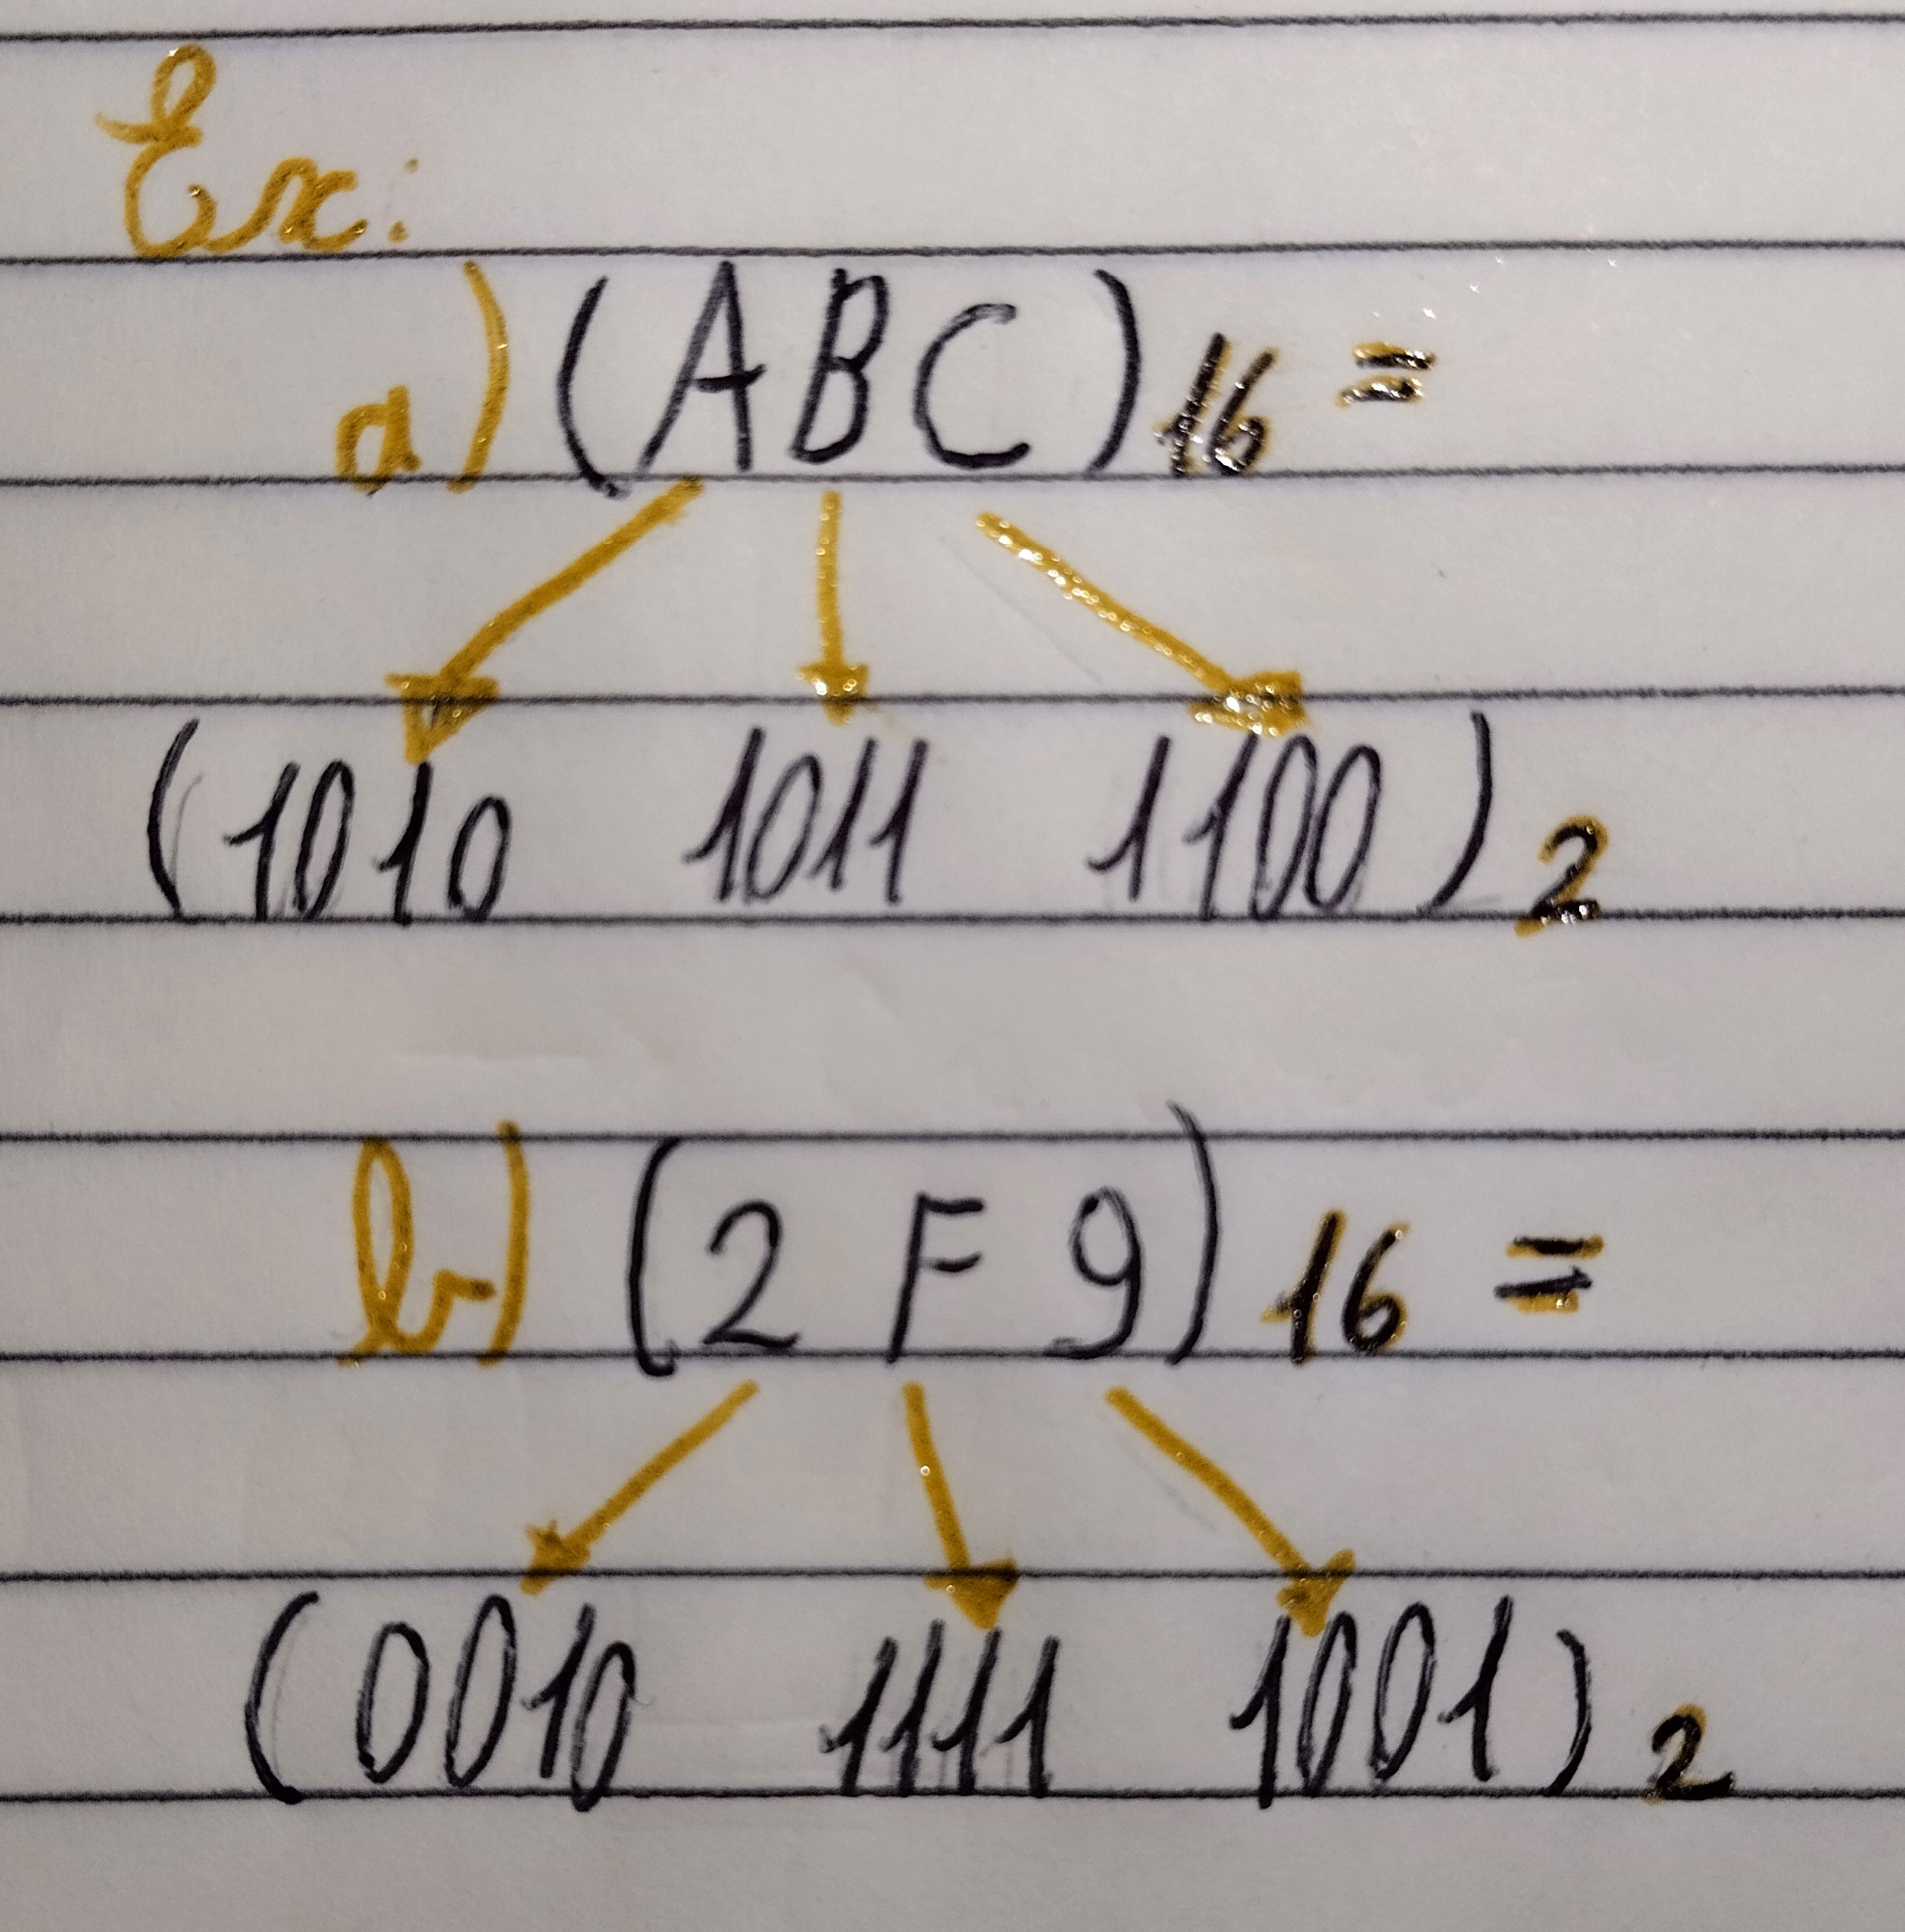 Ex:
a) (ABC)16 =
(1010 1011 1100)2
b) (2 F 9)16 =
(0010 1111 1001)2